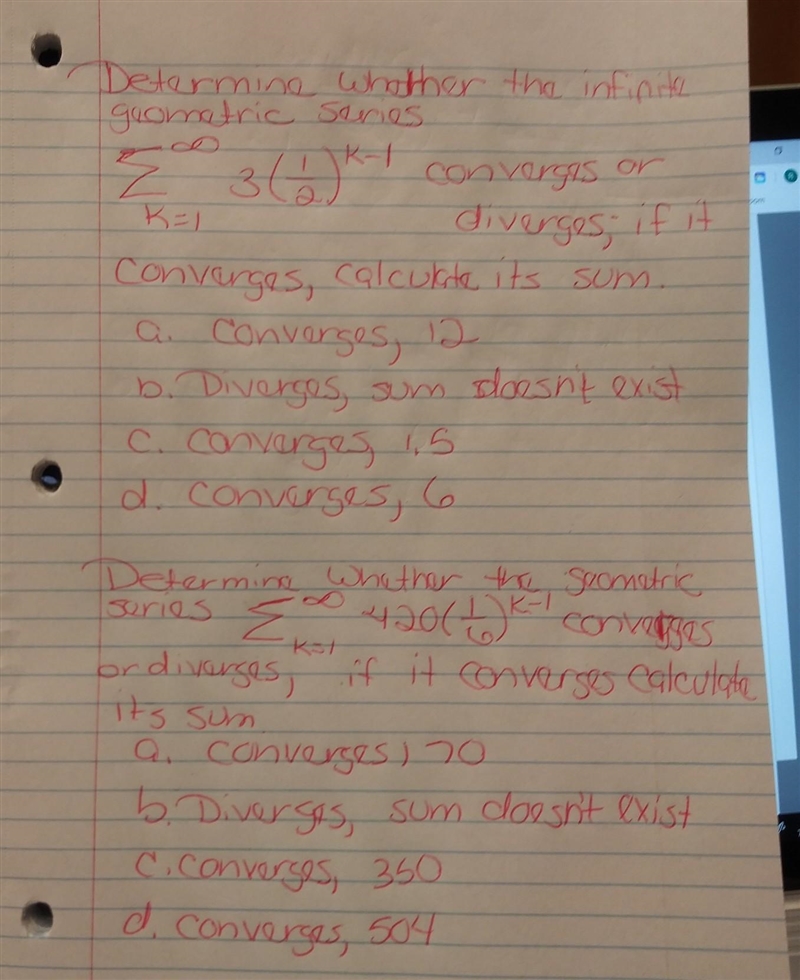 Determine whether the infinite
geometric series
∞
Σ 3(1/2)^K-1 converges or
K=1 diverges; if it
converges, calculate its sum.
a. converges, 12
b. Diverges, sum doesn't exist
c. converges, 1.5
d. converges, 6
Determine whether the geometric
series Σ^∞ 420(1/6)^K-1 converges
K=1
or diverges, if it converges calculate
its sum
a. converges, 70
b. Diverges, sum doesn't exist
c. converges, 350
d. converges, 504